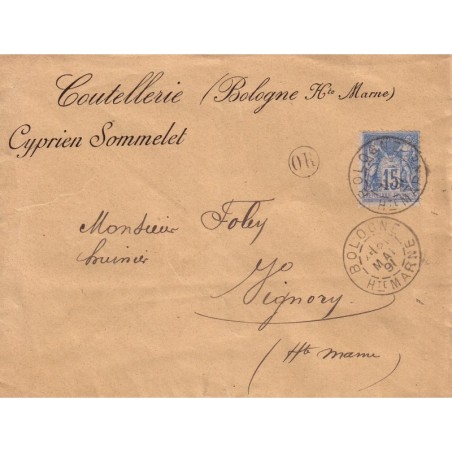 Coutellerie (Bologne Hte Marne)
Cyprien Sommelet
OR
BOLOGNE
15
Hte M
Monsieur Foley
huissier
Vignory
(Hte marne)
BOLOGNE
MAI
91
Hte MARNE